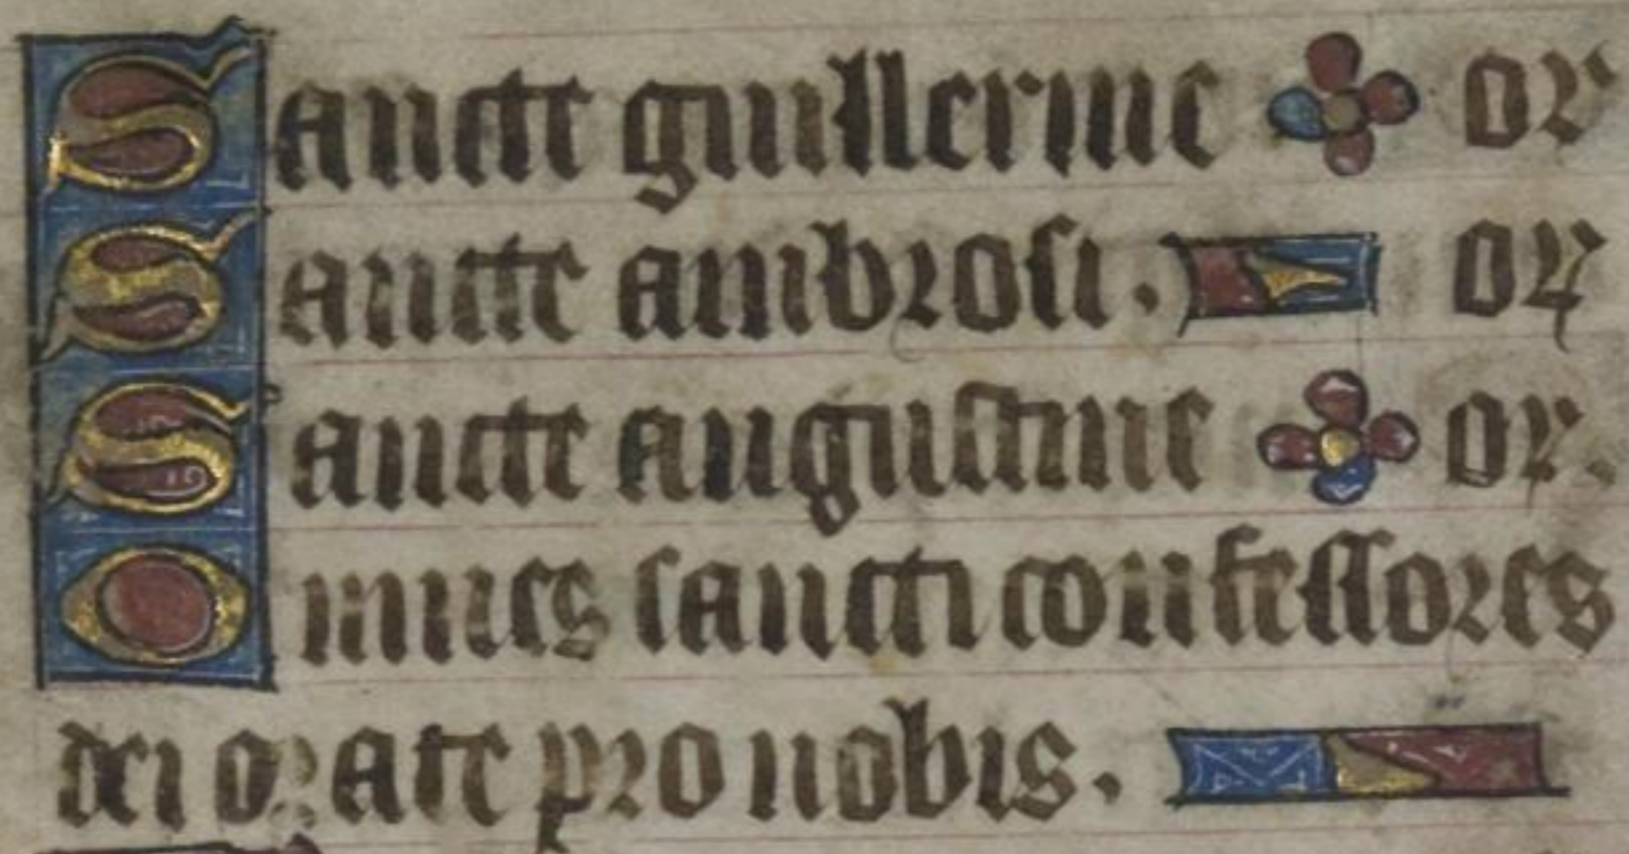 Sancte guillerme or
Sancte ambrosi. or
Sancte augustine or.
Omnes sancti confessores
dei orate pro nobis.